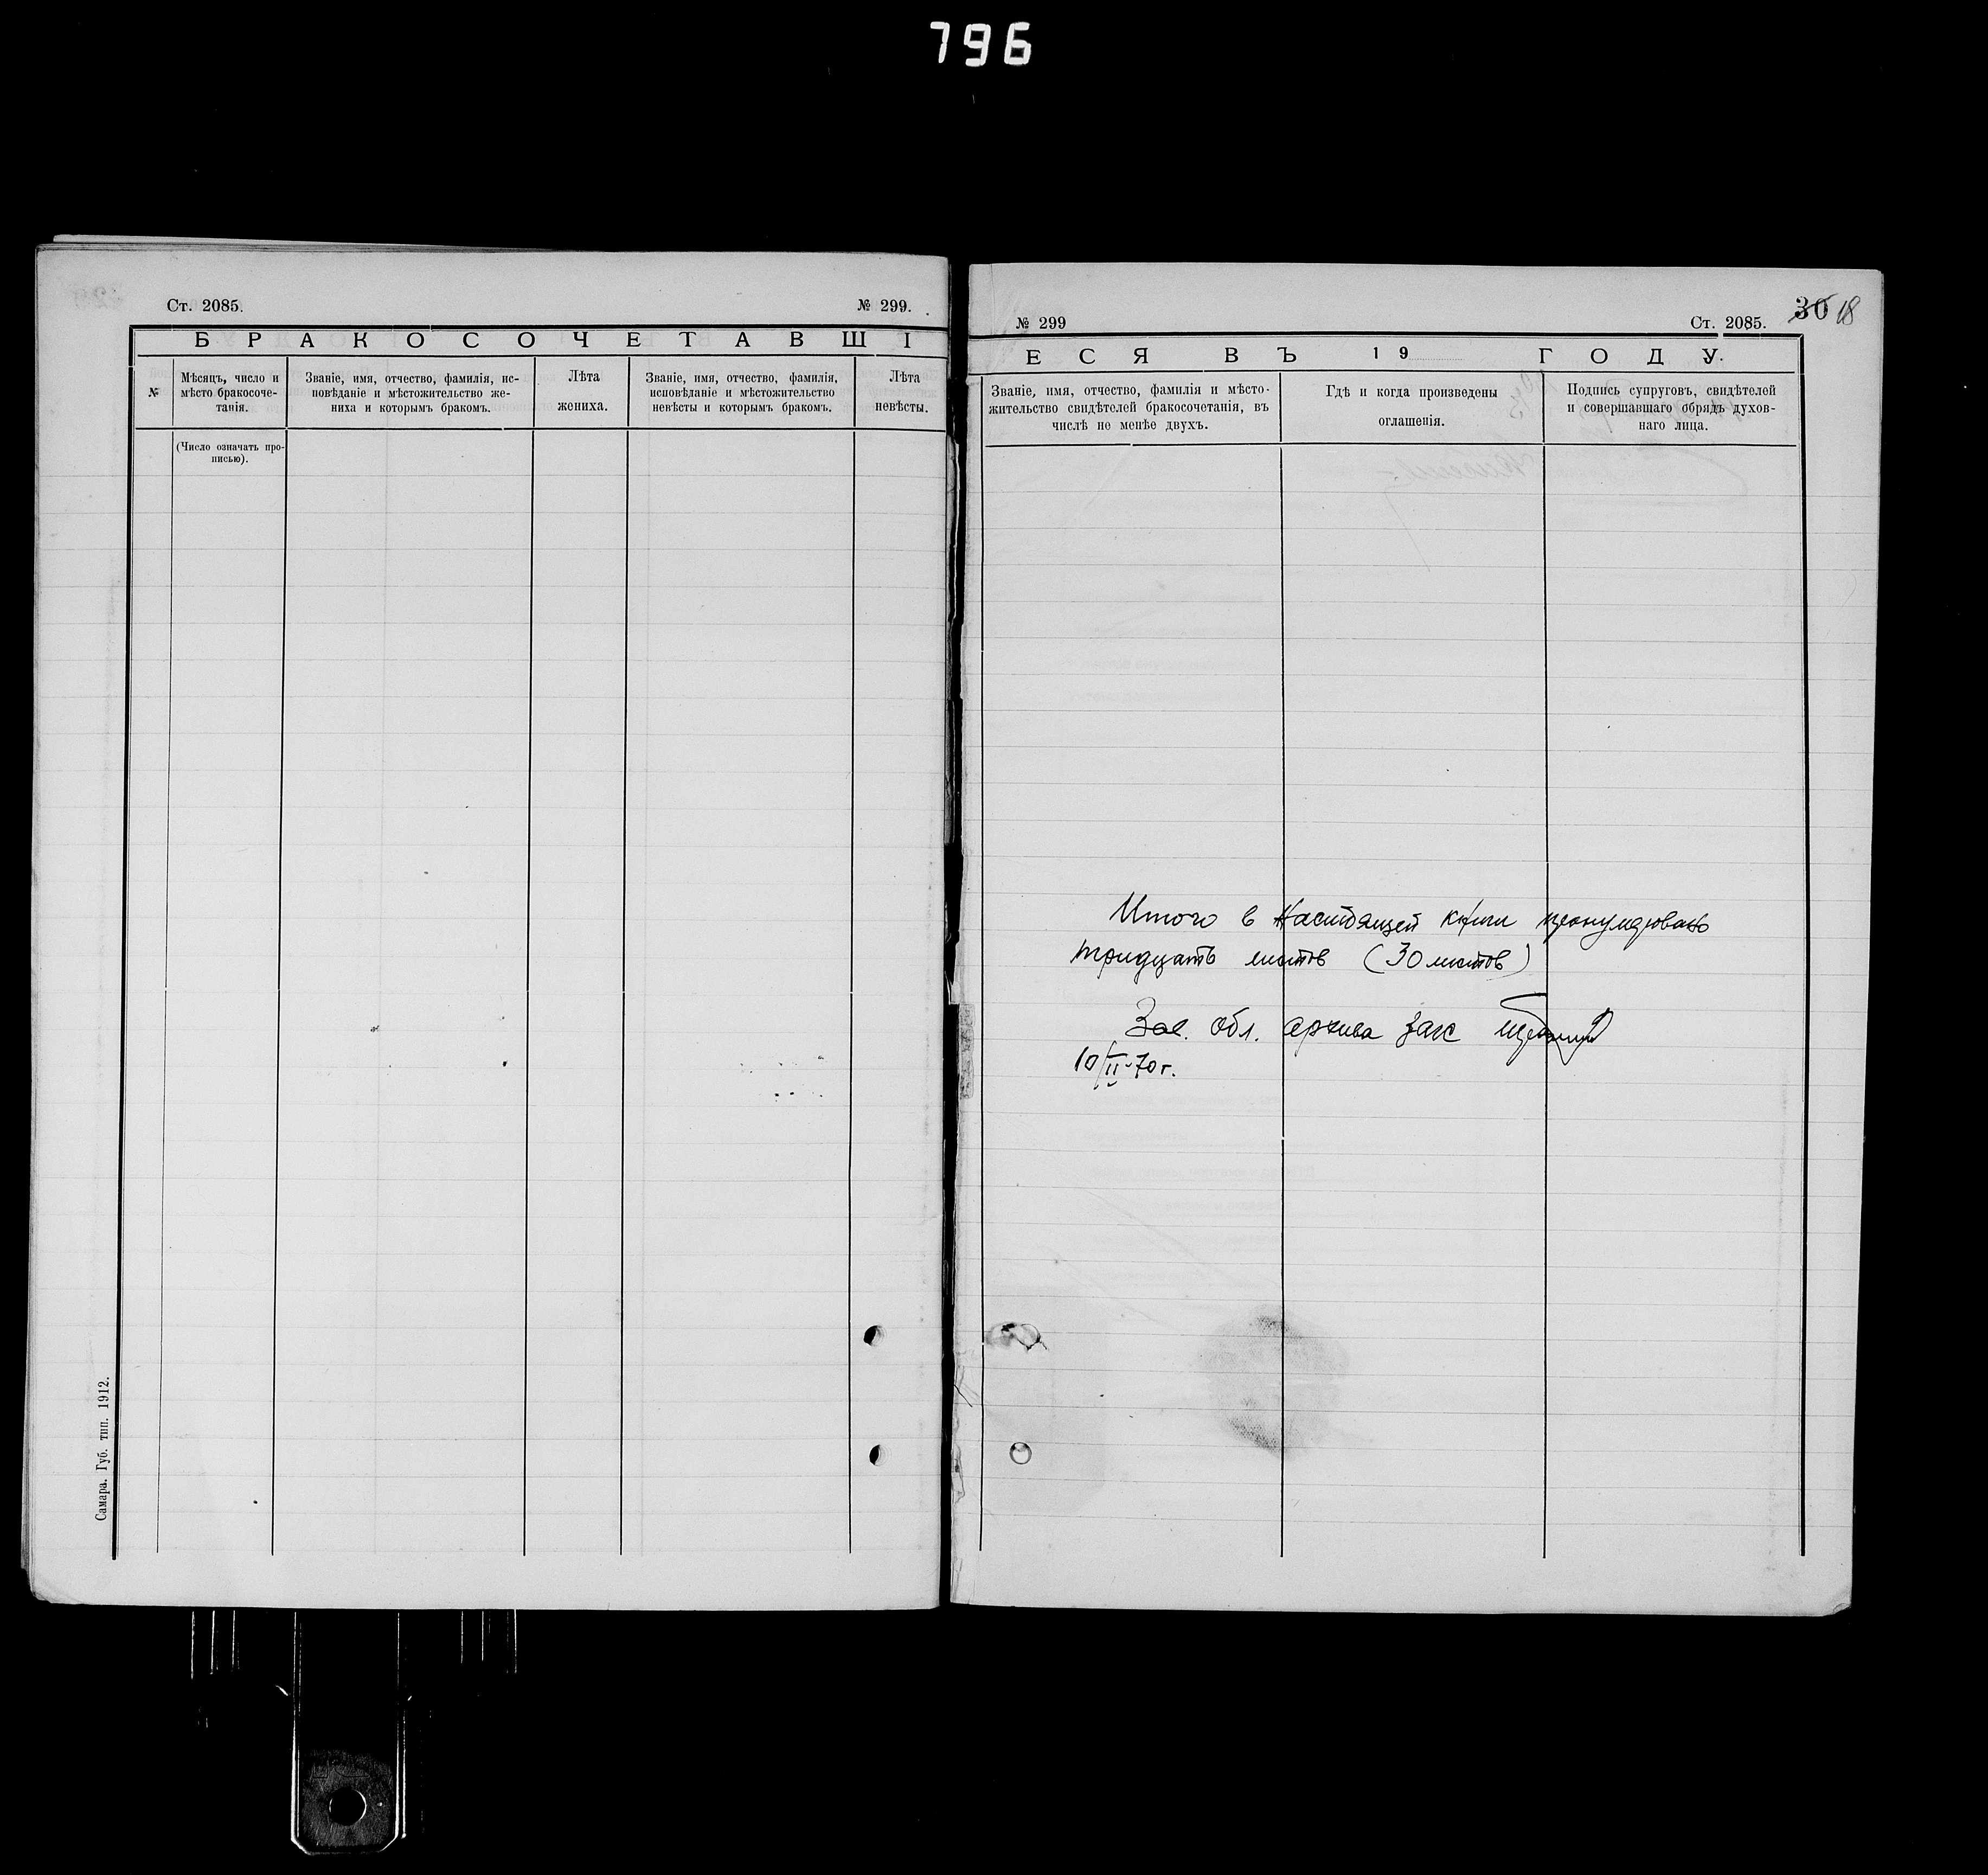 796
Ст. 2085.
№ 299.
БРАКОСОЧЕТАВШІ
№
Мѣсяцъ, число и
мѣсто бракосоче-
танія.
Званіе, имя, отчество, фамилія, ис-
повѣданіе и мѣстожительство же-
ниха и которымъ бракомъ.
Лѣта
жениха.
Званіе, имя, отчество, фамилія,
исповѣданіе и мѣстожительство
невѣсты и которымъ бракомъ.
Лѣта
невѣсты.
(Число означать про-
писью).
Самара. Губ. тип. 1912.
№ 299
Ст. 2085.
30 18
ЕСЯ ВЪ 19 ГОДУ.
Званіе, имя, отчество, фамилія и мѣсто-
жительство свидѣтелей бракосочетанія, въ
числѣ не менѣе двухъ.
Гдѣ и когда произведены
оглашенія.
Подпись супруговъ, свидѣтелей
и совершавшаго обрядъ духов-
наго лица.
Итого в настоящей книги пронумеровано
тридцать листов (30 листов)
Зав. обл. архива загс
10/II-70г.